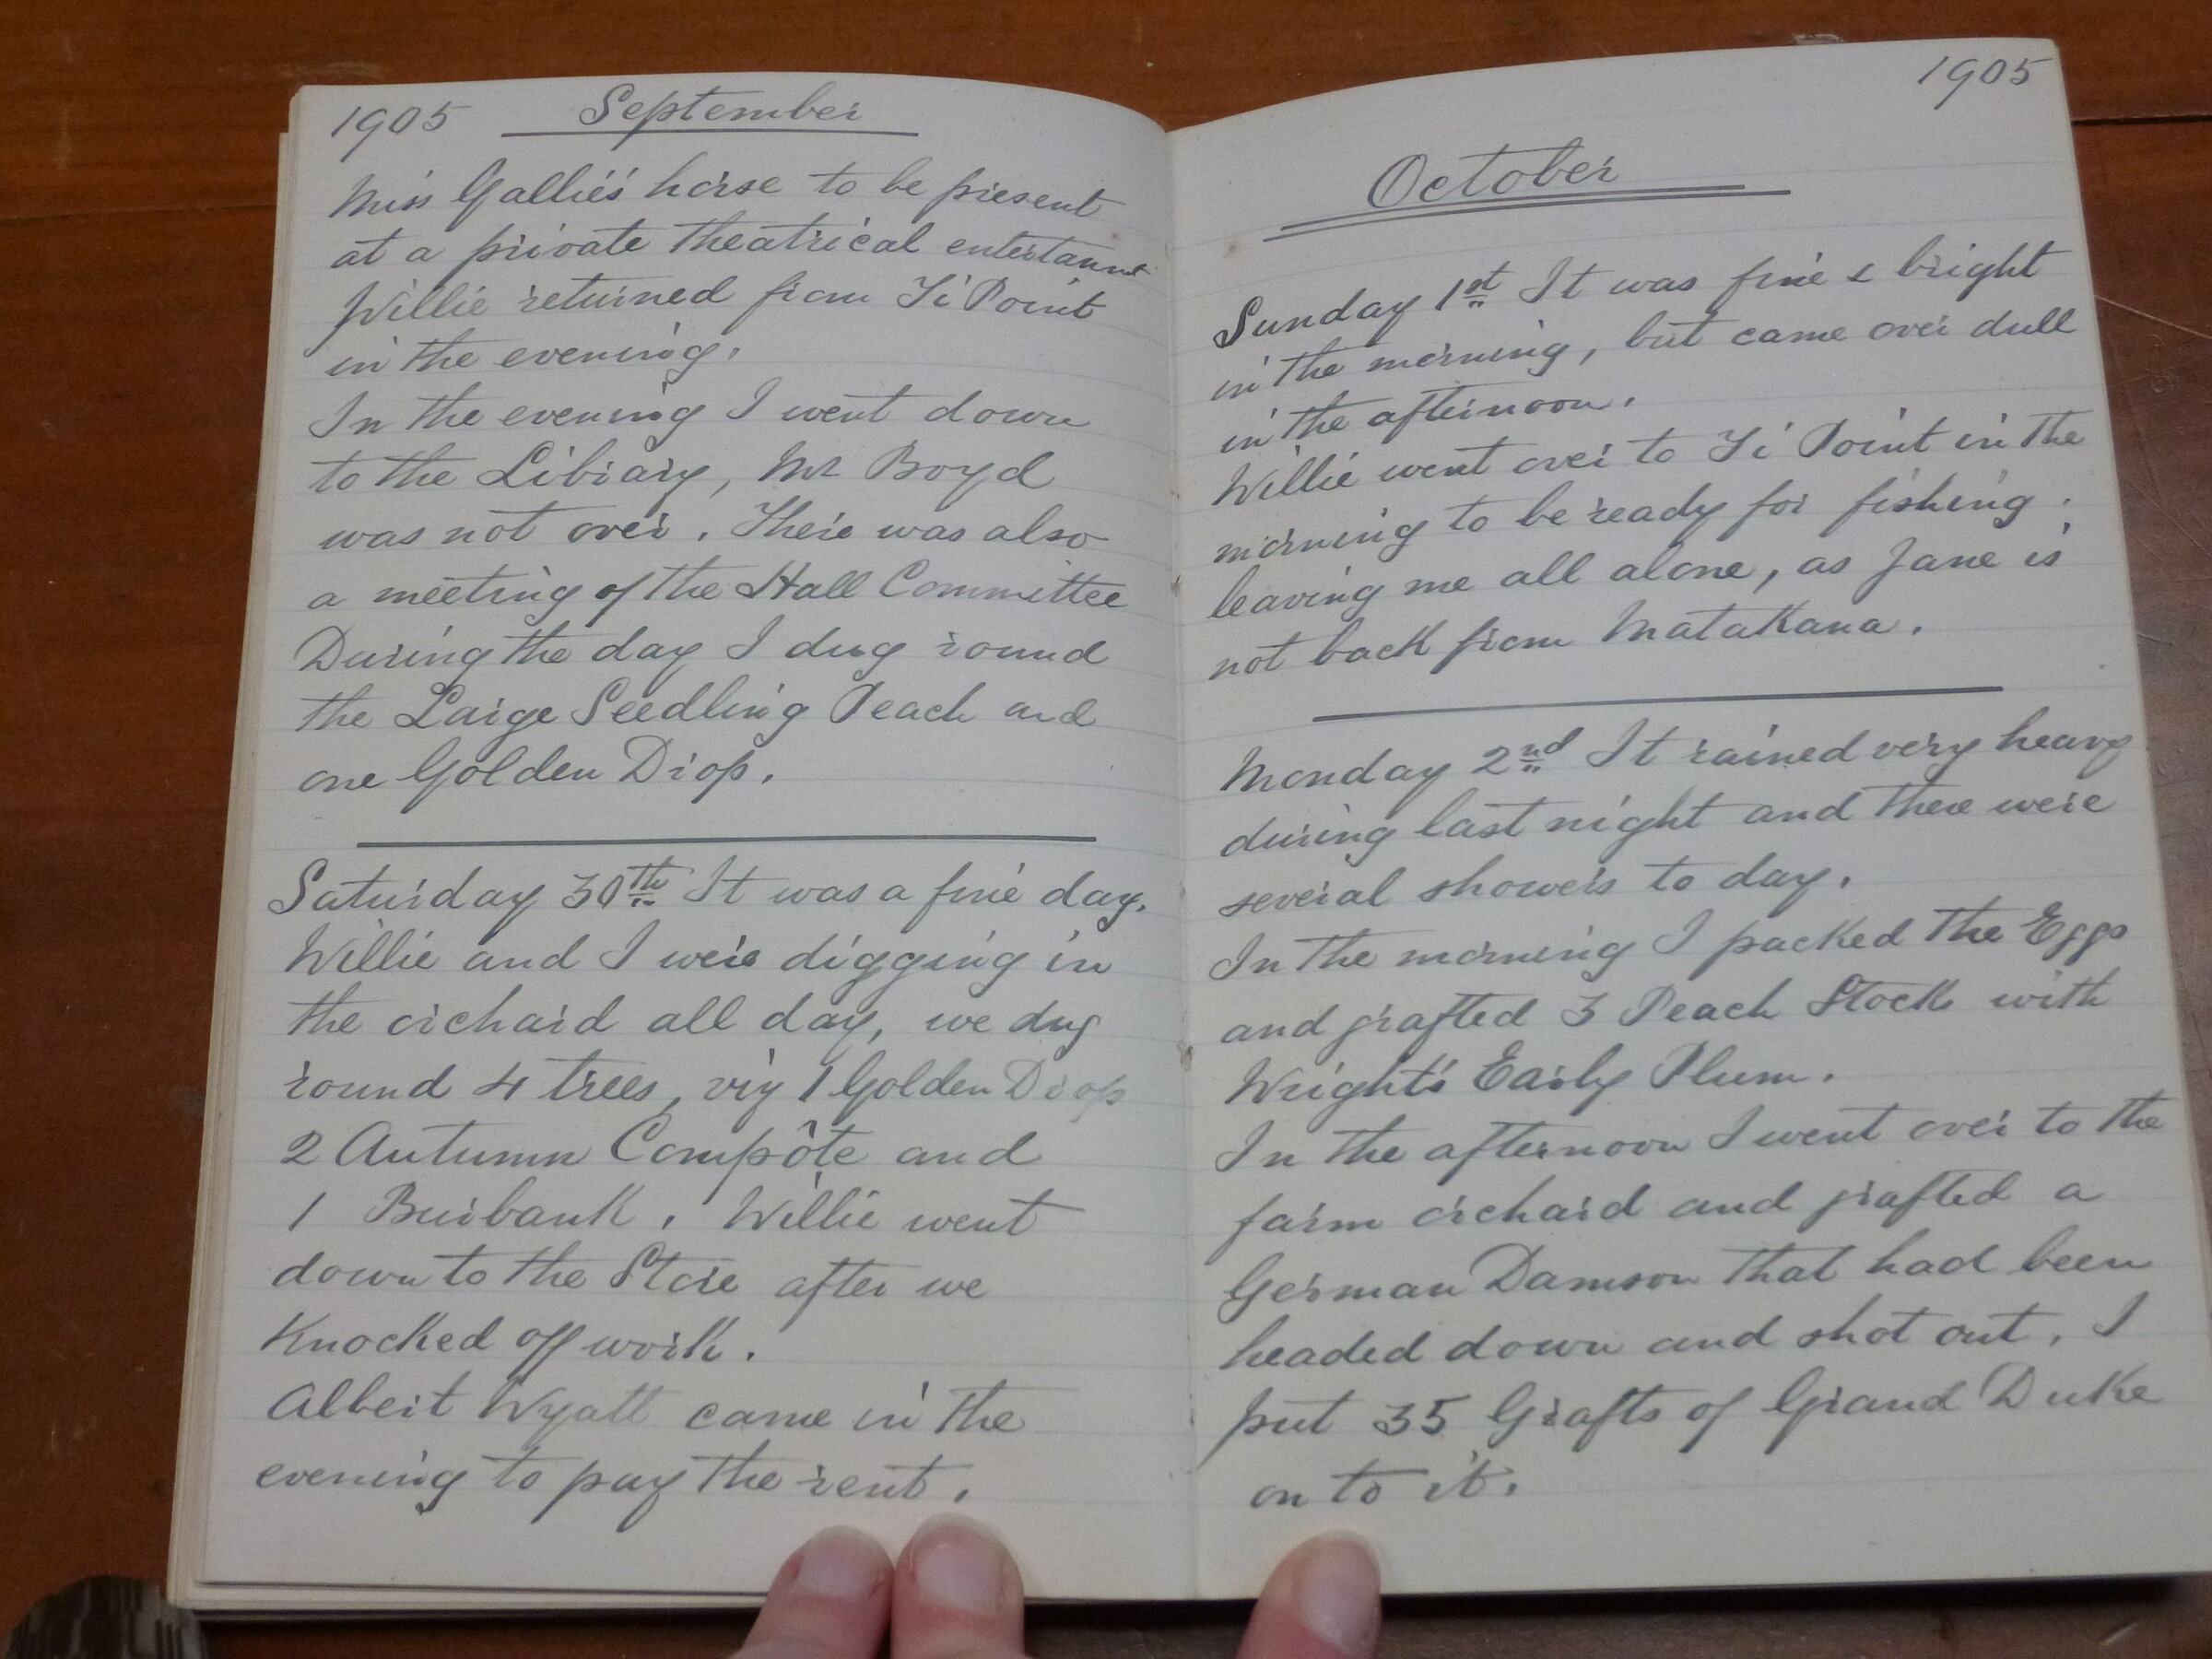 1905 September
Miss Gallie's horse to be present
at a private theatrical entertanmt
Willie returned from Ti Point
in the evening.
In the evening I went down
to the Library, Mr Boyd
was not over. There was also
a meeting of the Hall Committee
During the day I dug round
the Large Seedling Peach and
one Golden Drop.
Saturday 30th It was a fine day.
Willie and I were digging in
the orchard all day, we dug
round 4 trees, viz 1 Golden Drop
2 Autumn Compôte and
1 Burbank. Willie went
down to the Store after we
Knocked off work.
Albert Wyatt came in the
evening to pay the rent.
1905
October
Sunday 1st It was fine & bright
in the morning, but came over dull
in the afternoon.
Willie went over to Ti Point in the
morning to be ready for fishing.
leaving me all alone, as Jane is
not back from Matakana.
Monday 2nd It rained very heavy
during last night and there were
several showers to day.
In the morning I packed the Eggs
and grafted 3 Peach Stock with
Wright's Early Plum.
In the afternoon I went over to the
farm orchard and grafted a
German Damson that had been
headed down and shot out. I
put 35 Grafts of Grand Duke
on to it.